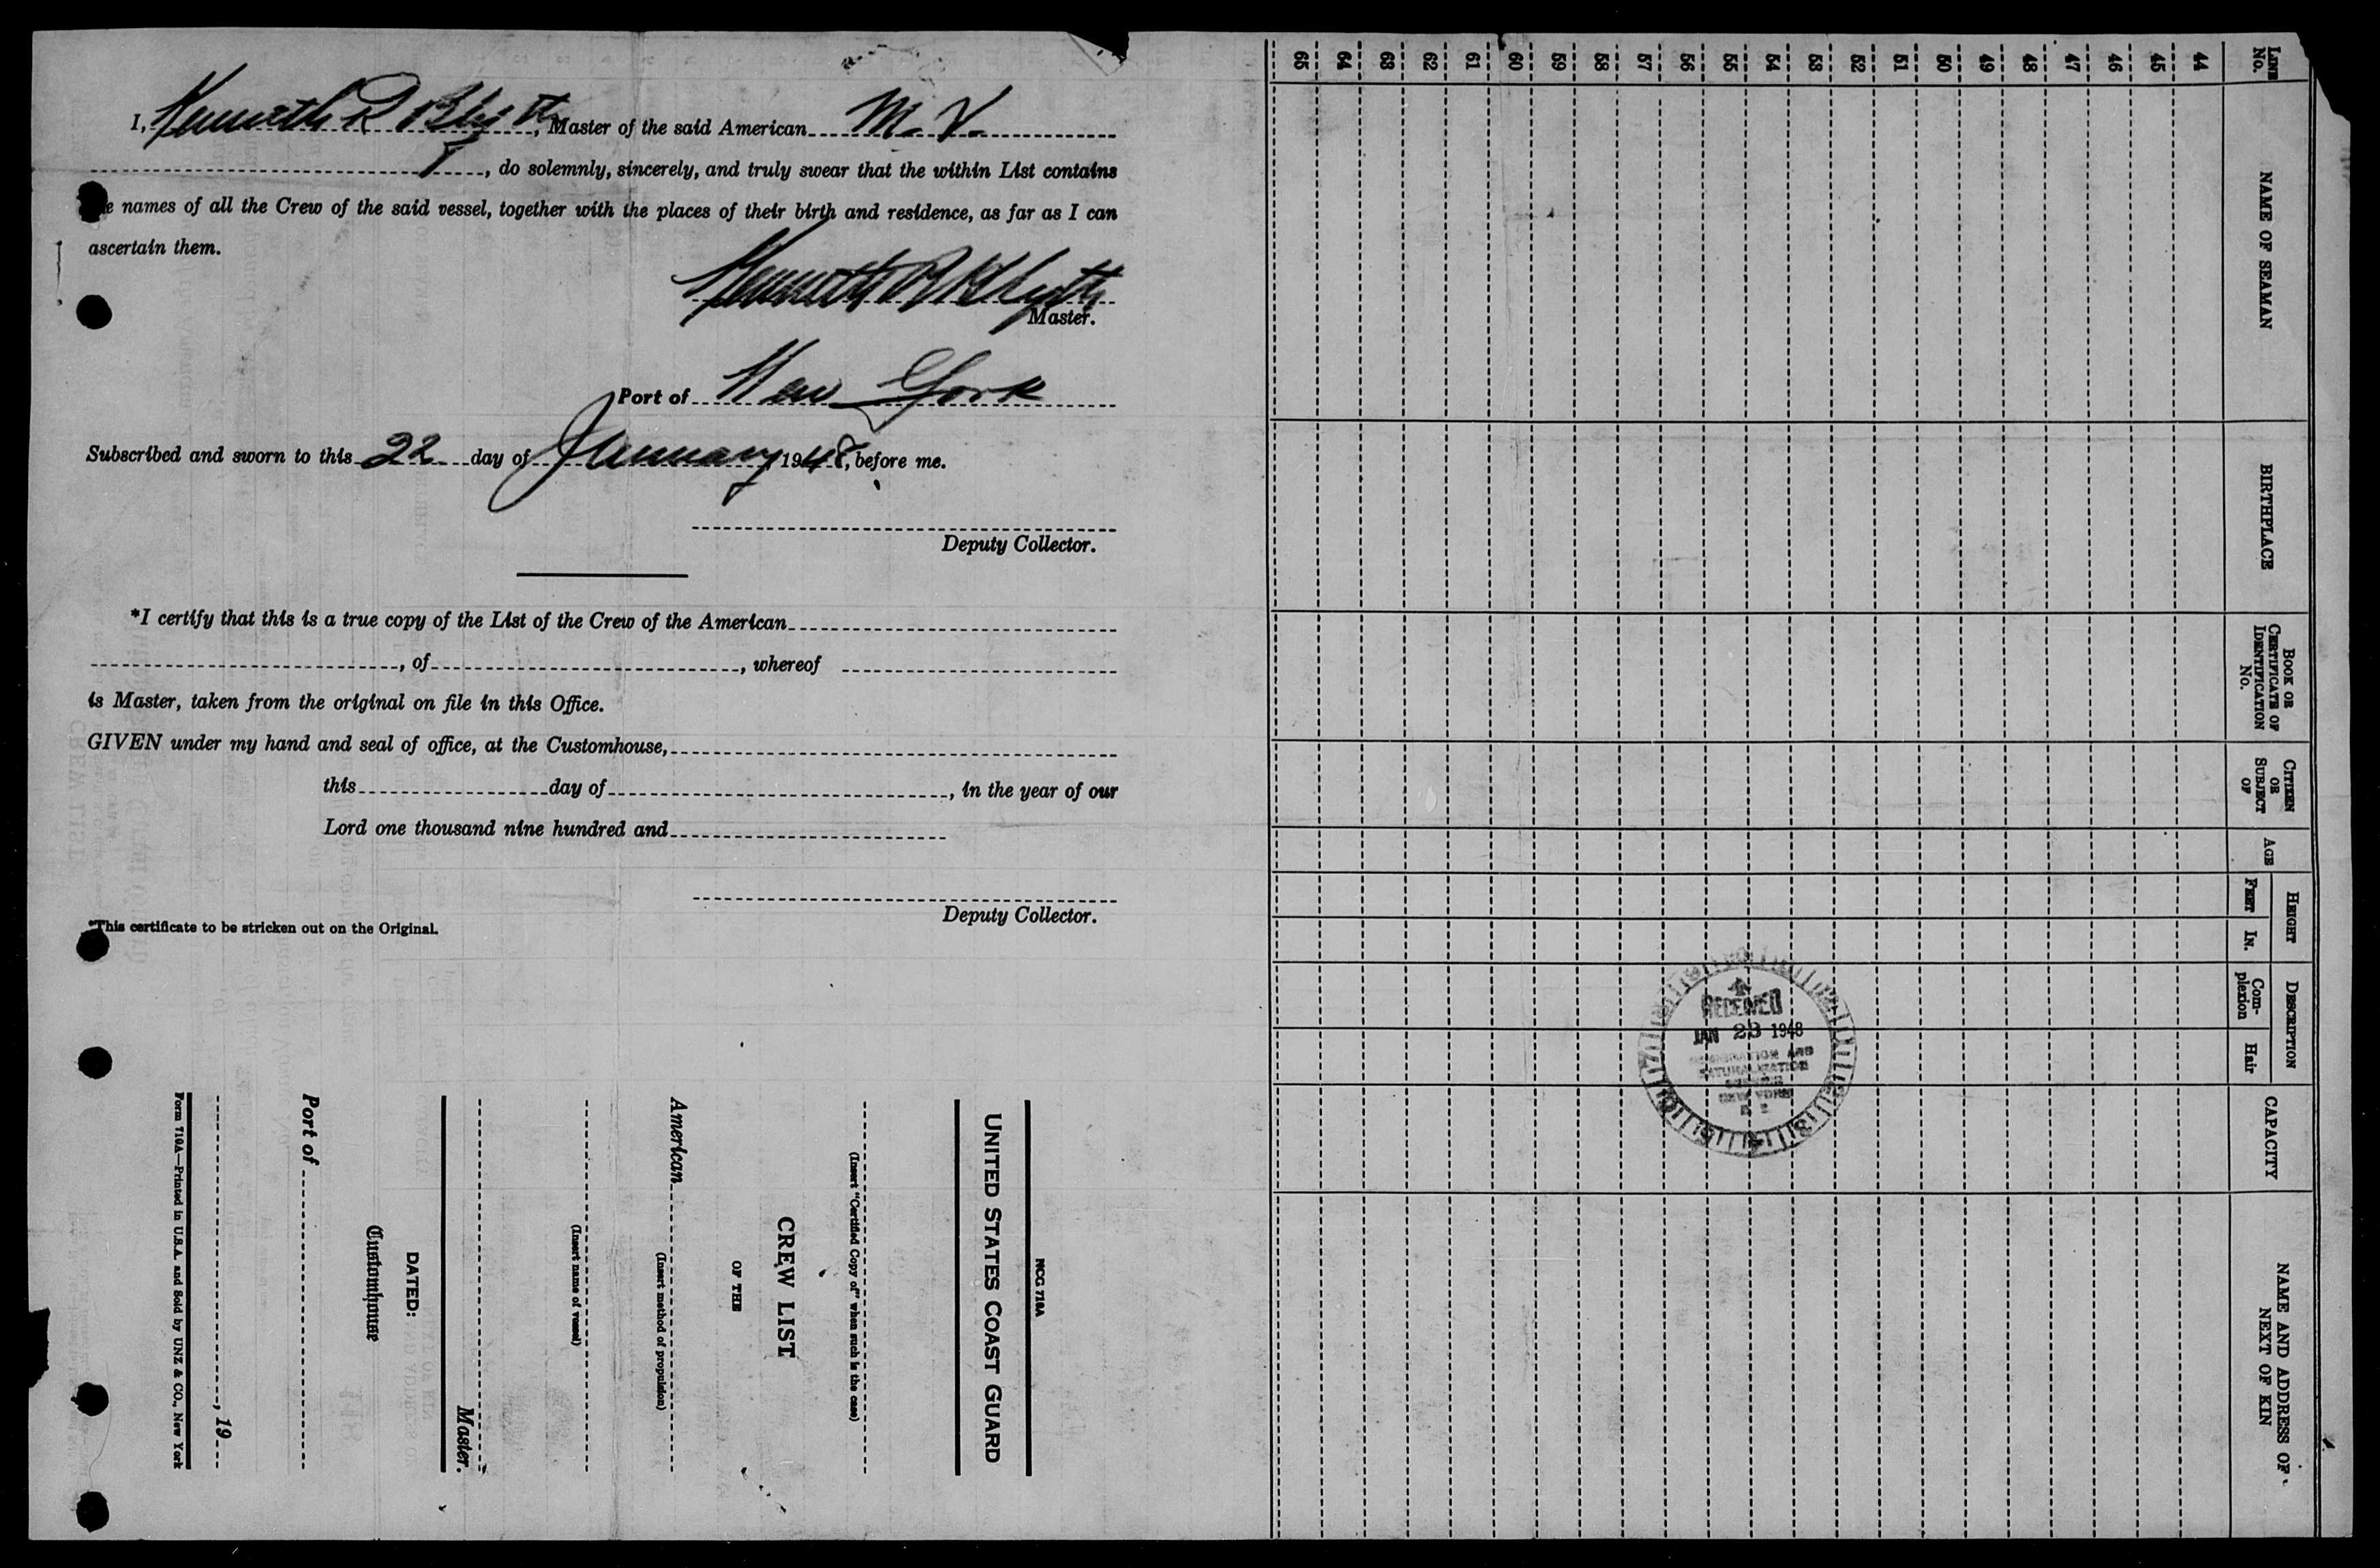 I, Kenneth R Blyth, Master of the said American M. V.
, do solemnly, sincerely, and truly swear that the within List contains
names of all the Crew of the said vessel, together with the places of their birth and residence, as far as I can
ascertain them.
Kenneth R Blyth
Master.
Port of New York
Subscribed and sworn to this 22 day of January 1948, before me.
Deputy Collector.
*I certify that this is a true copy of the List of the Crew of the American
, of , whereof
is Master, taken from the original on file in this Office.
GIVEN under my hand and seal of office, at the Customhouse,
this day of , in the year of our
Lord one thousand nine hundred and
Deputy Collector.
*This certificate to be stricken out on the Original.
NCG 710A
UNITED STATES COAST GUARD
(Insert "Certified Copy of" when such is the case)
CREW LIST
OF THE
American
(Insert method of propulsion)
(Insert name of vessel)
Master.
DATED:
Customhouse
Port of
, 19
Form 710A—Printed in U.S.A. and Sold by UNZ & CO., New York
LINE No.
NAME OF SEAMAN
BIRTHPLACE
BOOK OR CERTIFICATE OF IDENTIFICATION No.
CITIZEN OR SUBJECT OF
AGE
HEIGHT
FEET
IN.
DESCRIPTION
Complexion
Hair
CAPACITY
NAME AND ADDRESS OF NEXT OF KIN
44
45
46
47
48
49
50
51
52
53
54
55
56
57
58
59
60
61
62
63
64
65
RECEIVED
JAN 23 1948
IMMIGRATION AND
NATURALIZATION
SERVICE
NEW YORK